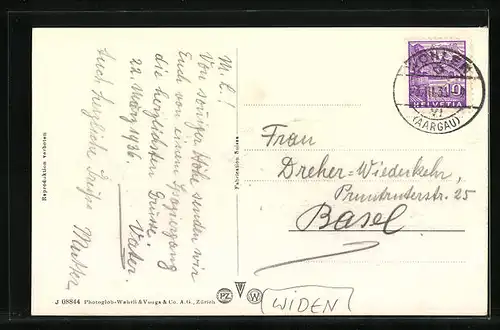 M. L.!
Von sonniger Höh senden wir
Euch von einem Spaziergang
die herzlichsten Grüsse.
22. März 1936.
Vater.
Auch herzliche Grüsse Mutter
Reproduktion verboten
Fabrication Suisse
WOHLEN
(AARGAU)
VI
10
HELVETIA
Frau
Dreher-Wiederkehr,
Pruntruterstr. 25
Basel
J 08844 Photoglob-Wehrli & Vouga & Co. A.G., Zürich
PZ W
WIDEN